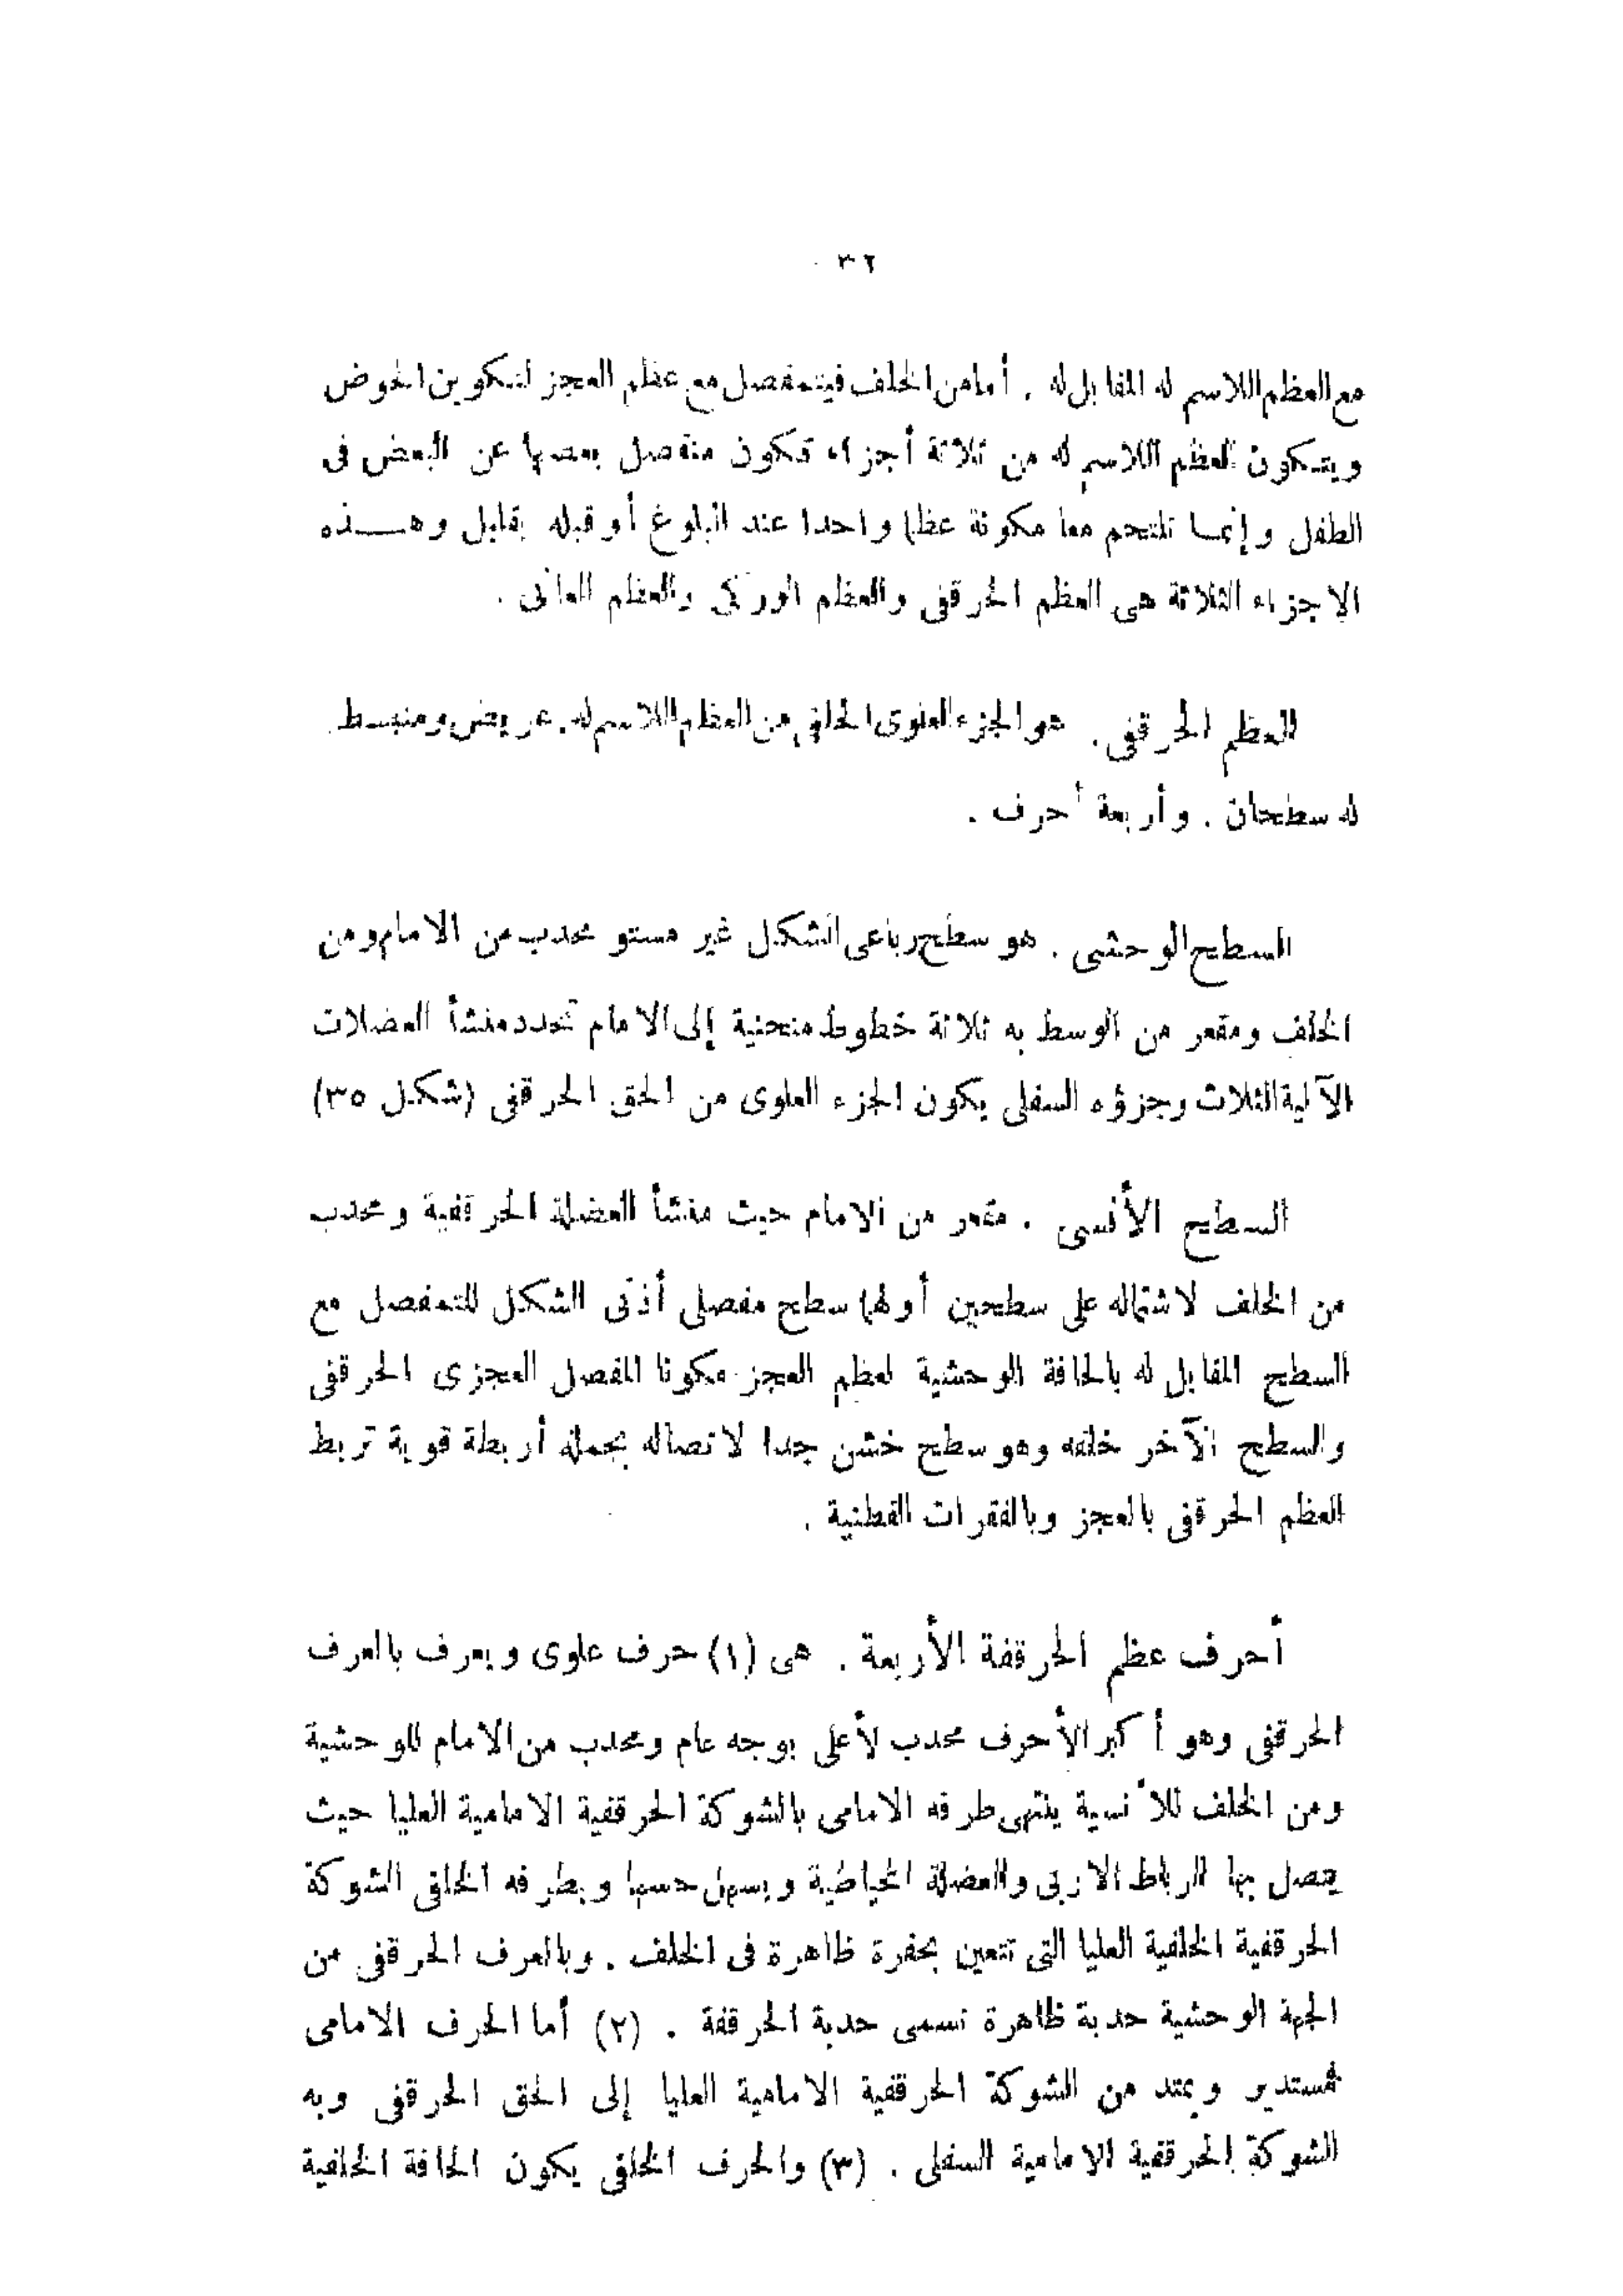 ٣٢
مع العظم اللااسم له المقابل له . أما من الخلف فيتمفصل مع عظم العجز لتكوين الحوض
ويتكون العظم اللااسم له من ثلاثة أجزاء تكون منفصل بعضها عن البعض فى
الطفل وإنما تلتحم معا مكونة عظما واحدا عند البلوغ أو قبله بقليل وهذه
الاجزاء الثلاثة هى العظم الحرقفى والعظم الوركى والعظم العانى .
العظم الحرقفى . هو الجزء العلوى الخلفى من العظم اللااسم له. عريض ومنبسط
له سطحان . وأربعة أحرف .
السطح الوحشى . هو سطح رباعى الشكل غير مستو محدب من الامام ومن
الخلف ومقعر من الوسط به ثلاثة خطوط منحنية إلى الامام تحدد منشأ العضلات
الآلية الثلاث وجزؤه السفلى يكون الجزء العلوى من الحق الحرقفى (شكل ٣٥)
السطح الأنسى . مقعر من الامام حيث منشأ العضلة الحرقفية ومحدب
من الخلف لاشتماله على سطحين أولهما سطح مفصلى أذنى الشكل للتمفصل مع
السطح المقابل له بالحافة الوحشية لعظم العجز مكونا المفصل العجزى الحرقفى
والسطح الآخر خلفه وهو سطح خشن جدا لاتصاله بجملة أربطة قوية تربط
العظم الحرقفى بالعجز وبالفقرات القطنية .
أحرف عظم الحرقفة الأربعة . هى (١) حرف علوى ويعرف بالعرف
الحرقفى وهو أكبر الأحرف محدب لأعلى بوجه عام ومحدب من الامام للوحشية
ومن الخلف للأنسية ينتهى طرفه الامامى بالشوكة الحرقفية الامامية العليا حيث
يتصل بها الرباط الاربى والعضلة الخياطية ويسهل حسها وبطرفه الخلفى الشوكة
الحرقفية الخلفية العليا التى تتعين بحفرة ظاهرة فى الخلف . وبالعرف الحرقفى من
الجهة الوحشية حدبة ظاهرة تسمى حدبة الحرقفة . (٢) أما الحرف الامامى
فمستدير ويمتد من الشوكة الحرقفية الامامية العليا إلى الحق الحرقفى وبه
الشوكة الحرقفية الامامية السفلى . (٣) والحرف الخلفى يكون الحافة الخلفية